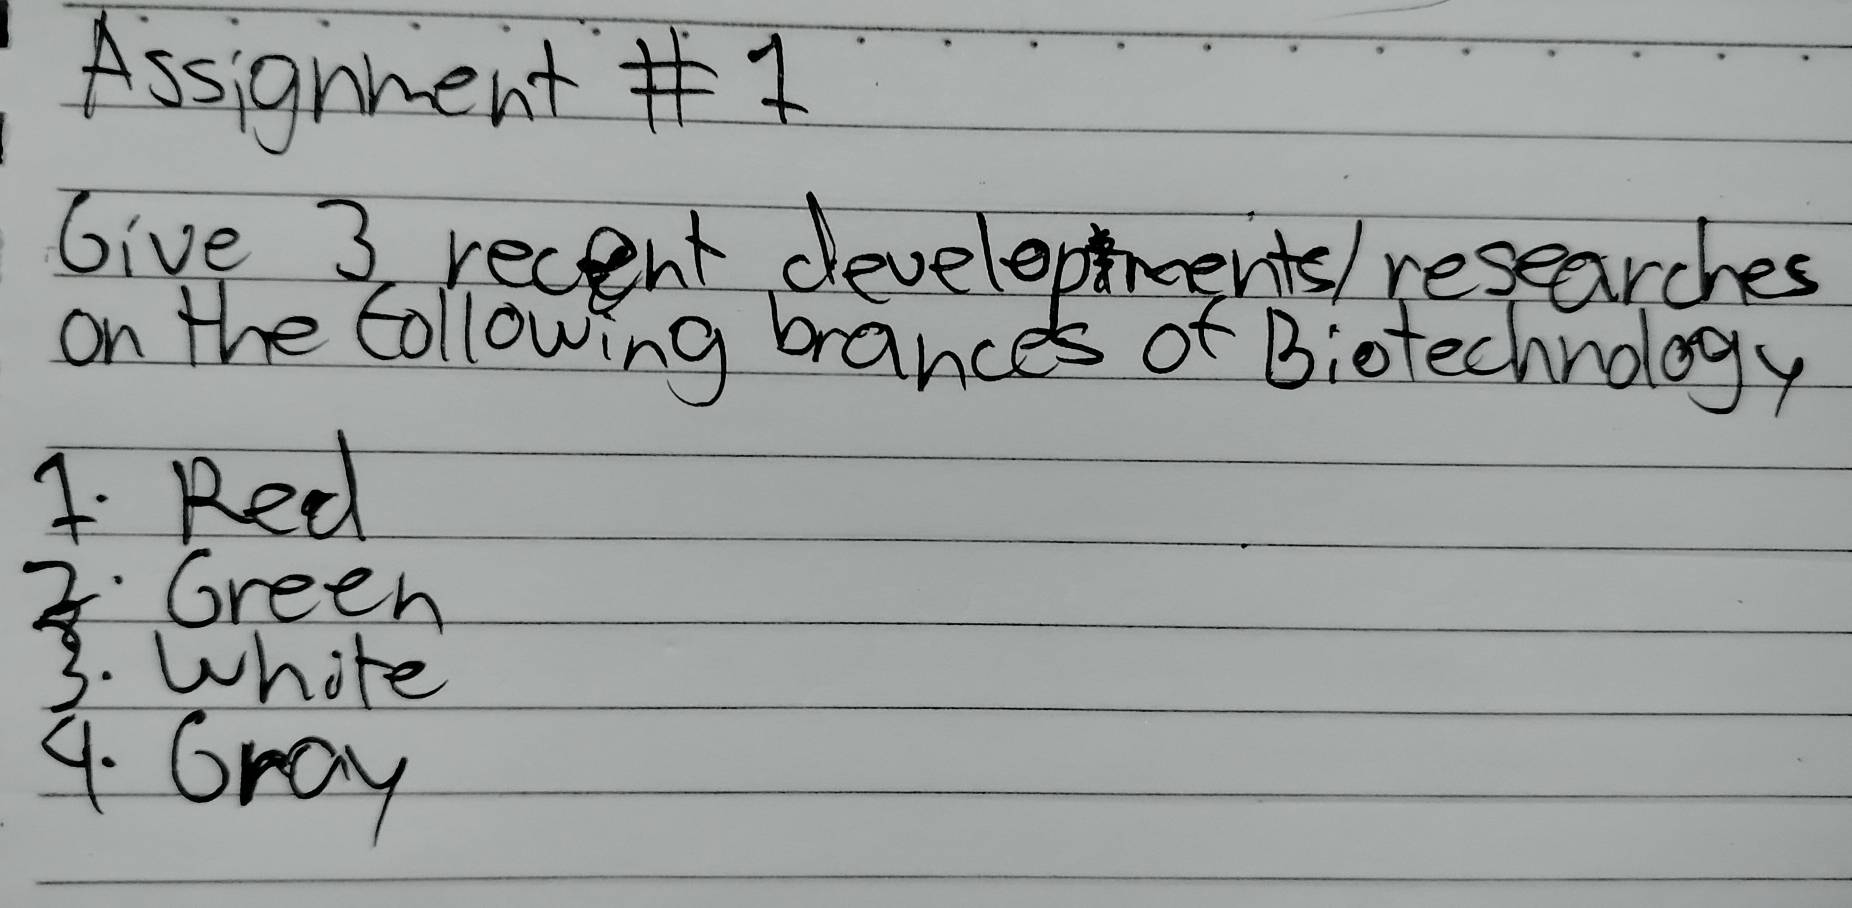 Assignment # 1
Give 3 recent developments/researches
on the following brances of Biotechnology
1. Red
2. Green
3. White
4. Gray